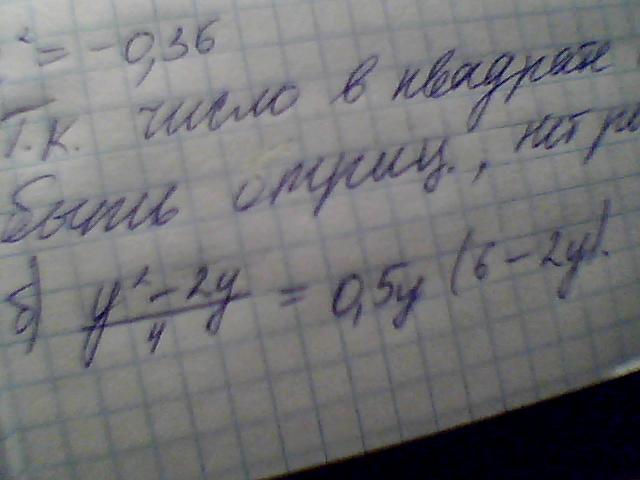 ² = -0,36
Т.к. число в квадрате
быть отриц., нет
б) (y² - 2y)/4 = 0,5y (6 - 2y).